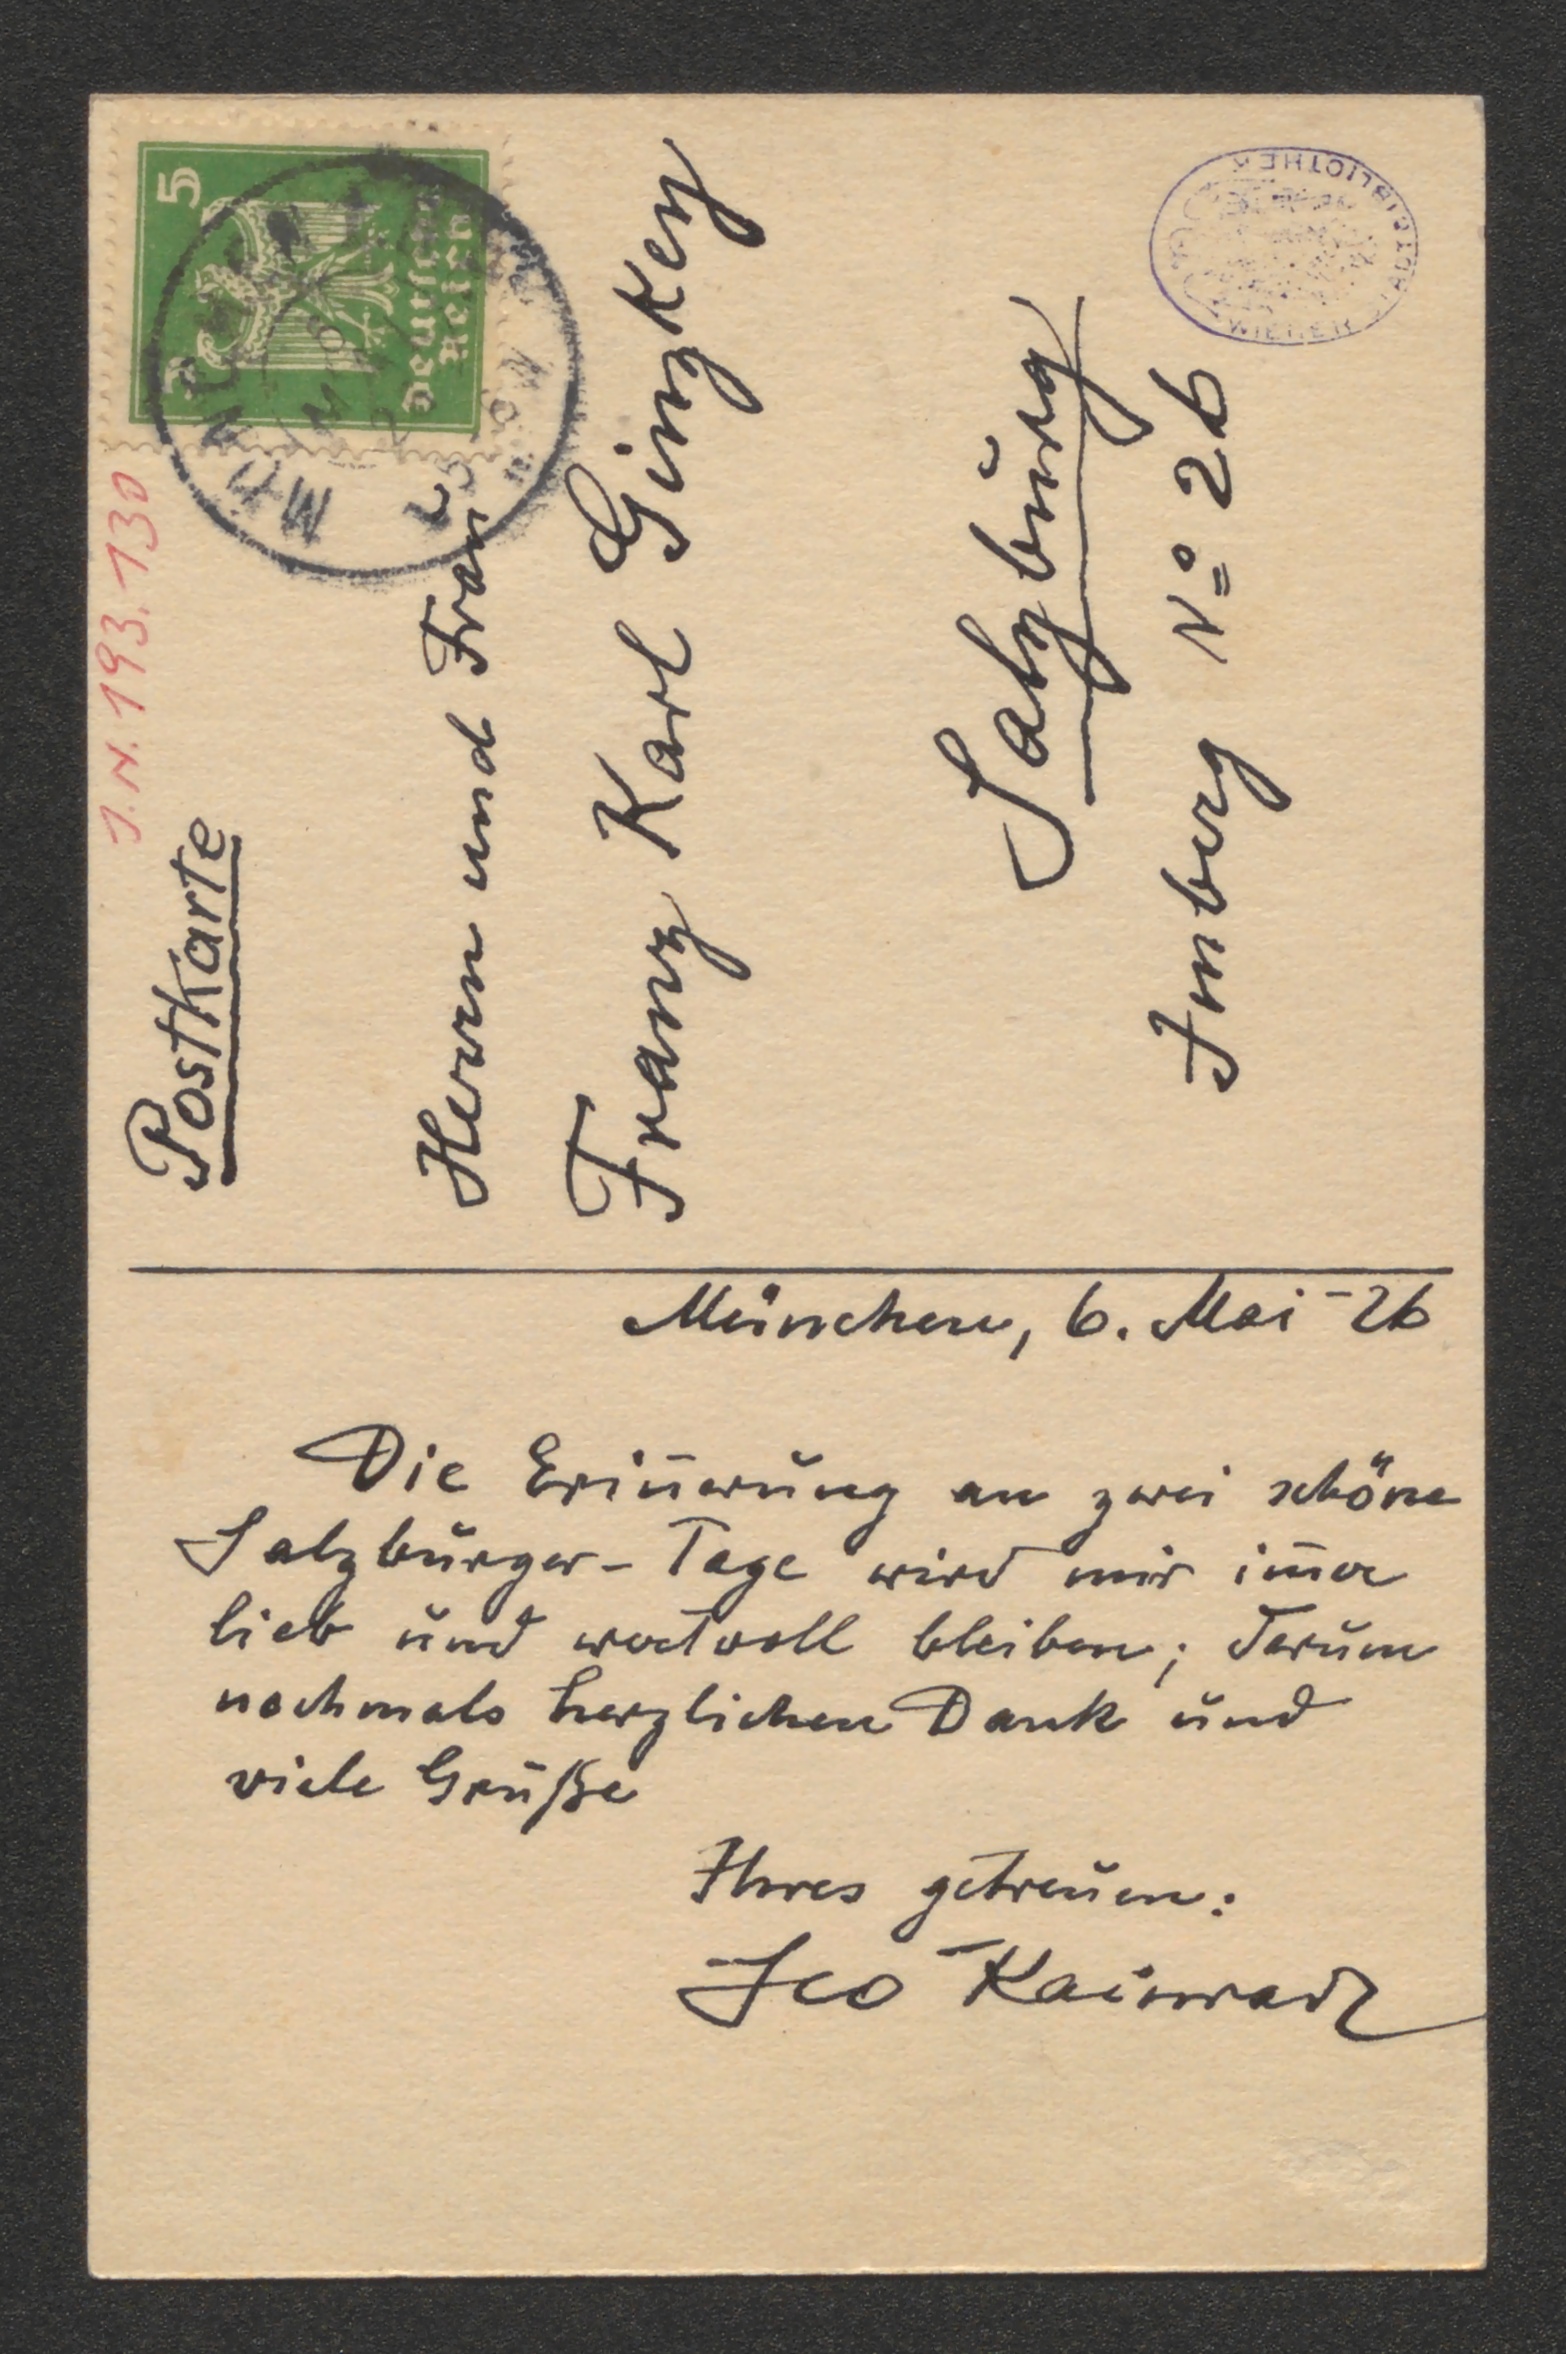 Postkarte
J.N. 193.130
5
Deutsches Reich
Herrn und Frau
Franz Karl Ginzkey
Salzburg
Imberg No 26
WIENER STADTBIBLIOTHEK
München, 6. Mai -26
Die Erin̄erung an zwei schöne
Salzburger-Tage wird mir im̄er
lieb und wertvoll bleiben; darum
nochmals herzlichen Dank und
viele Grüße
Ihres getreuen:
Leo Kainradl